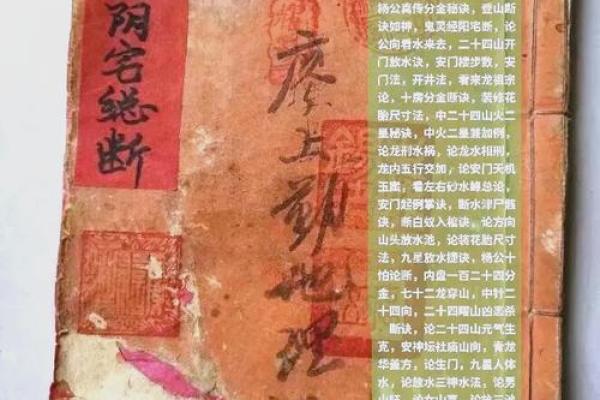 阴宅總断
上勤地理
杨公真传分金秘诀，登山断
诀如神，鬼灵经阳宅断，论
公向看水来去，二十四山开
门放水诀，安门楼步数，安
门法，开井法，看来龙祖宗
论，十房分金断诀，装修花
胎尺寸法，中二十四山火二
星秘诀，中火二星兼加例，
论龙刑水祸，论水龙相刑，
龙内五行交加，论安门天机
玉蜜，看左右砂水总论，
安门起例掌诀，断水津尸骸
诀，断白蚁入棺诀，论方向
山头放水池，论装花胎尺寸
法，九星放水捷诀，杨公十
怕论断，内盘一百二十四分
金，七十二龙穿山，中针二
十四向，二十四曜山凶恶杀
断诀，论二十四山元气生
克，安神坛社庙山向，青龙
华盖方，论生门，九星人体
水，论放水三神水法，论男